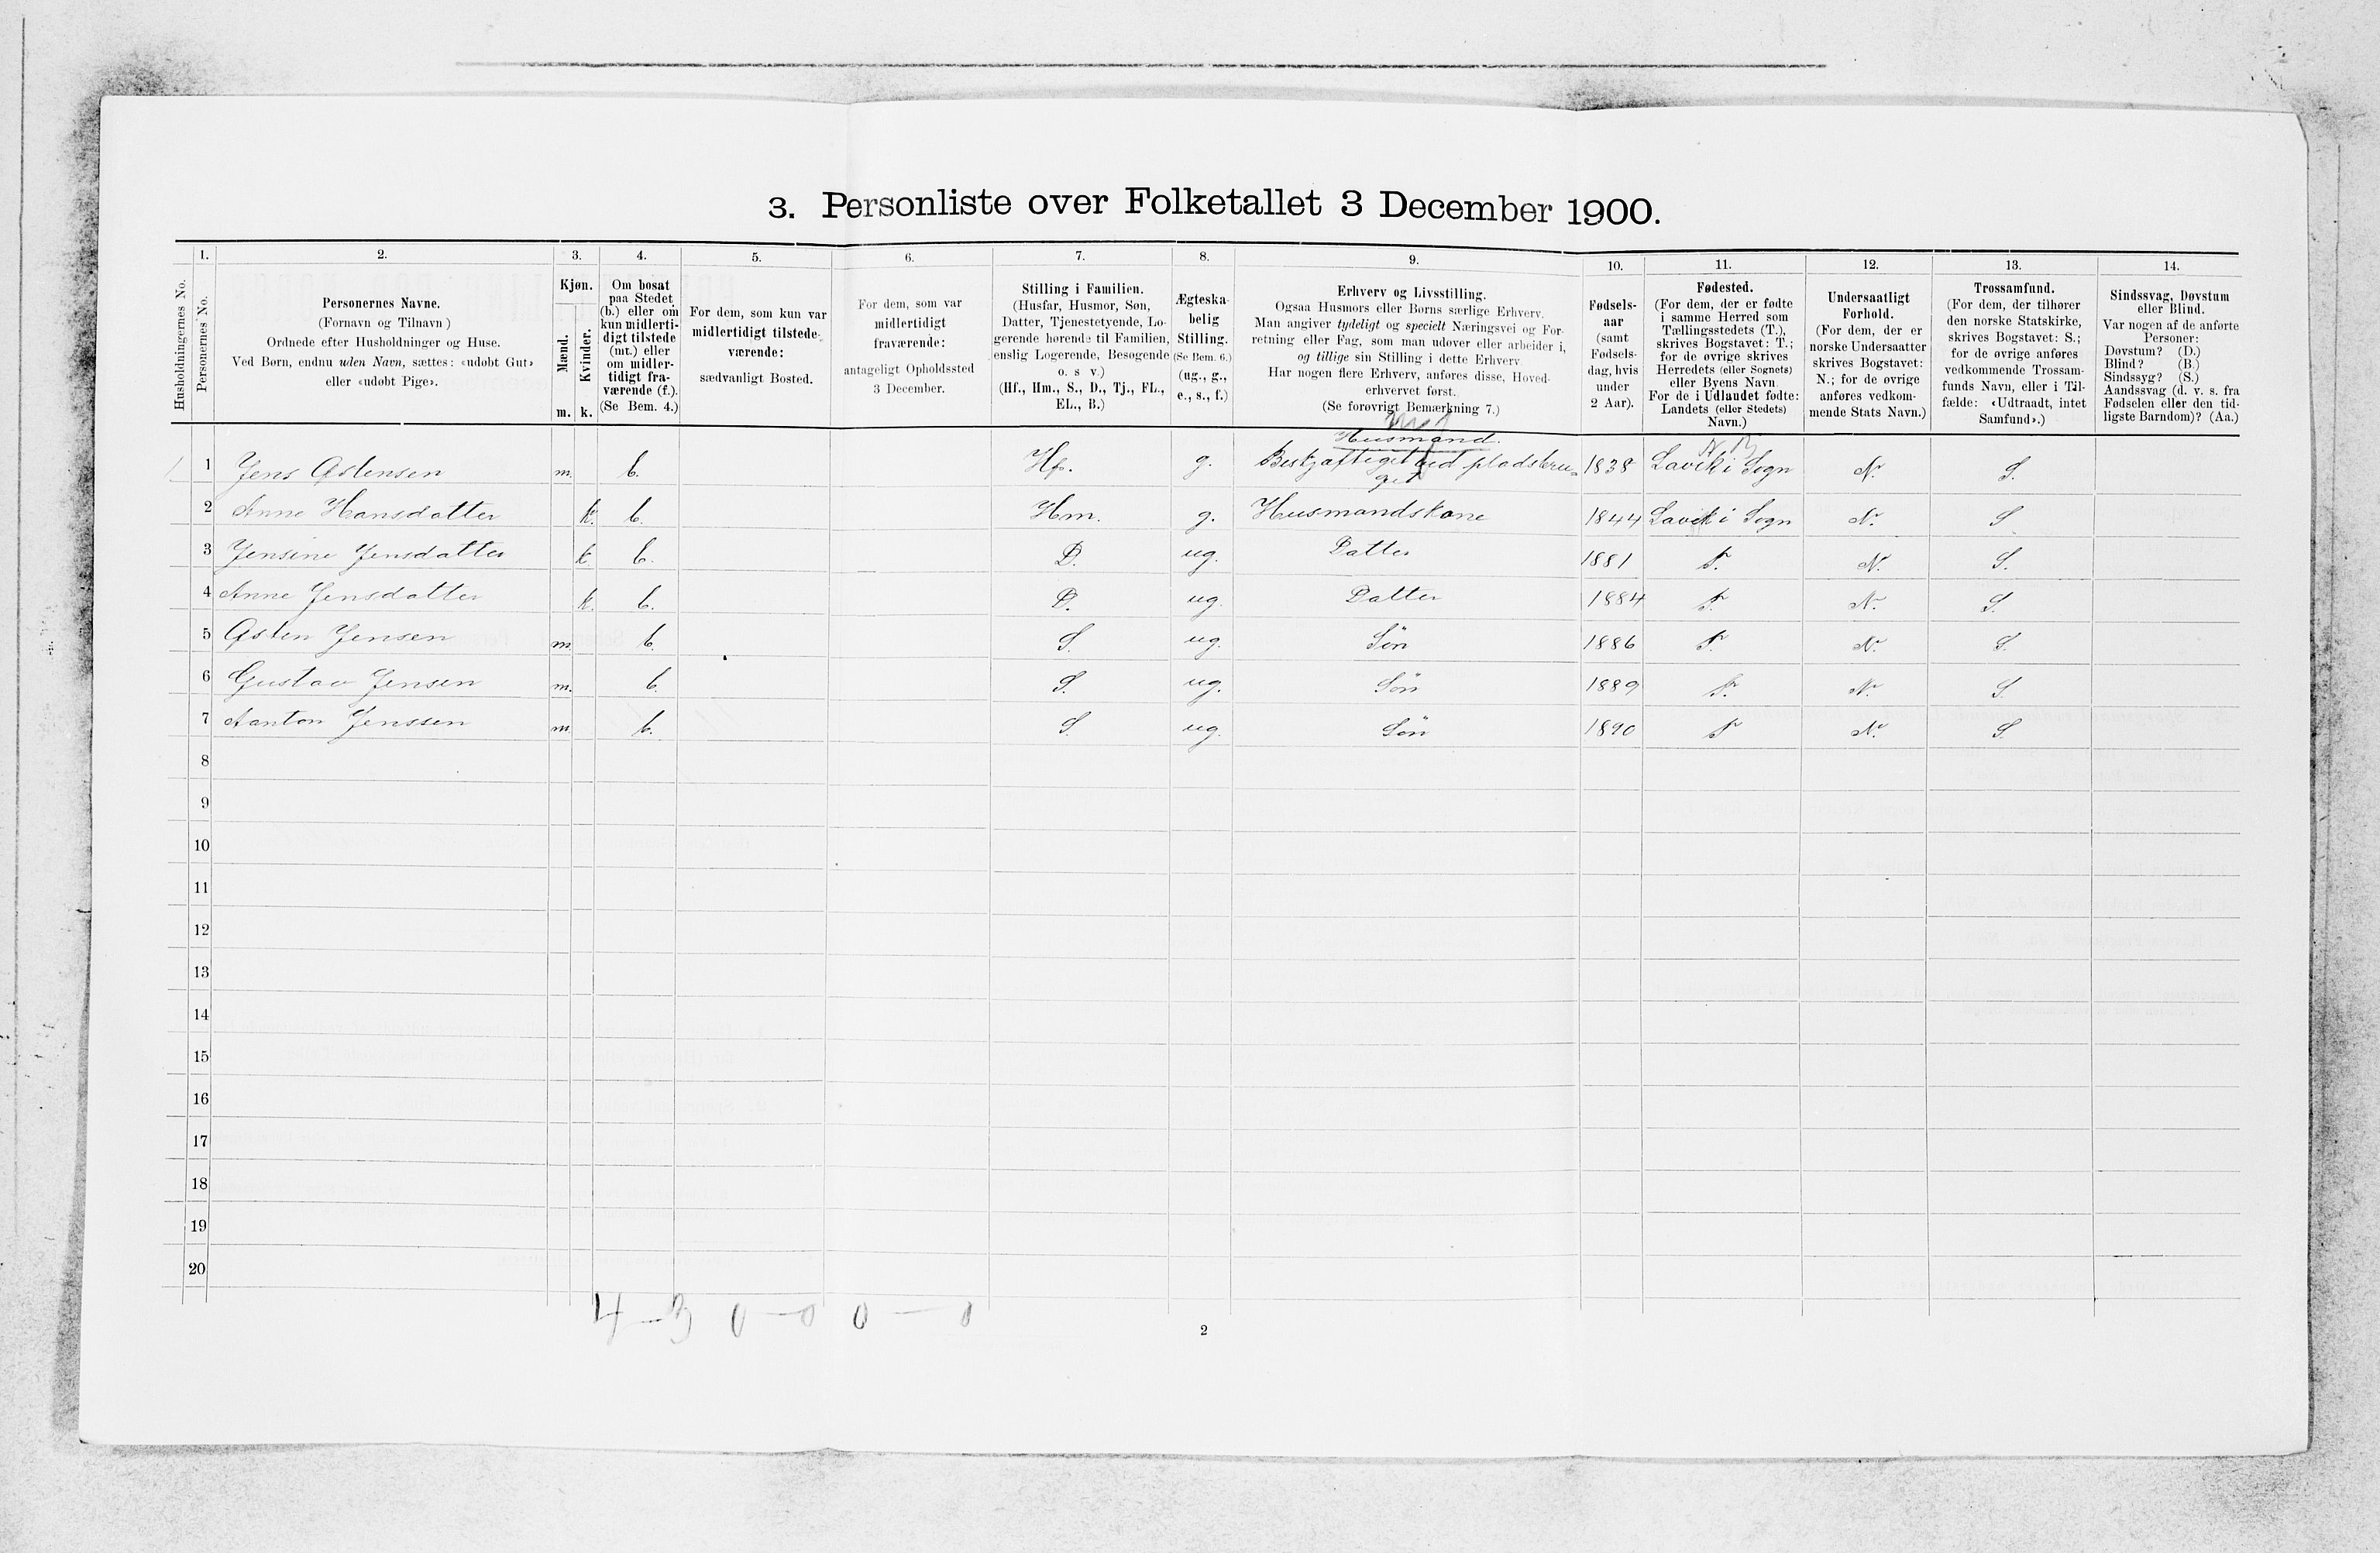 3. Personliste over Folketallet 3 December 1900.
Husholdningernes No.
1.
Personernes No.
2.
Personernes Navne.
(Fornavn og Tilnavn )
Ordnede efter Husholdninger og Huse.
Ved Børn, endnu uden Navn, sættes: «udøbt Gut»
eller «udøbt Pige».
3.
Kjøn.
Mænd.
Kvinder.
m. k.
4.
Om bosat
paa Stedet
(b.) eller om
kun midlerti-
digt tilstede
(mt.) eller
om midler-
tidigt fra-
værende (f.).
(Se Bem. 4.)
5.
For dem, som kun var
midlertidigt tilstede-
værende:
sædvanligt Bosted.
6.
For dem, som var
midlertidigt
fraværende:
antageligt Opholdssted
3 December.
7.
Stilling i Familien.
(Husfar, Husmor, Søn,
Datter, Tjenestetyende, Lo-
gerende hørende til Familien,
enslig Logerende, Besøgende
o. s v.)
(Hf., Hm., S., D., Tj., FL.,
EL., B.)
8.
Ægteska-
belig
Stilling.
(Se Bem. 6.)
(ug., g.,
e., s., f.)
9.
Erhverv og Livsstilling.
Ogsaa Husmors eller Børns særlige Erhverv.
Man angiver tydeligt og specielt Næringsvei og For-
retning eller Fag, som man udøver eller arbeider i,
og tillige sin Stilling i dette Erhverv
Har nogen flere Erhverv, anføres disse, Hoved-
erhvervet først.
(Se forøvrigt Bemærkning 7.)
10.
Fødsels-
aar
(samt
Fødsels-
dag, hvis
under
2 Aar).
11.
Fødested.
(For dem, der er fødte
i samme Herred som
Tællingsstedets (T.),
skrives Bogstavet: T.;
for de øvrige skrives
Herredets (eller Sognets)
eller Byens Navn
For de i Udlandet fødte:
Landets (eller Stedets)
Navn.)
12.
Undersaatligt
Forhold.
(For dem, der er
norske Undersaatter
skrives Bogstavet:
N.; for de øvrige
anføres vedkom-
mende Stats Navn.)
13.
Trossamfund.
(For dem, der tilhører
den norske Statskirke,
skrives Bogstavet: S.;
for de øvrige anføres
vedkommende Trossam-
funds Navn, eller i Til-
fælde: «Udtraadt, intet
Samfund».)
14.
Sindssvag, Døvstum
eller Blind.
Var nogen af de anførte
Personer:
Døvstum? (D.)
Blind? (B.)
Sindssyg? (S.)
Aandssvag (d. v. s. fra
Fødselen eller den tid-
ligste Barndom)? (Aa.)
Husmand.
1 Jens Østensen m. b. Hf. g. Beskjæftiget ved pladsbru- 1838 Lavik i Sogn N. S.
get
2 Anne Hansdatter k. b. Hm. g. Husmandskone 1844 Lavik i Sogn N. S
3 Jensine Jensdatter k. b. D. ug. Datter 1881 T. N. S.
4 Anne Jensdatter k. b. D. ug. Datter 1884 T. N. S.
5 Østen Jensen m. b. S. ug. Sön 1886 T. N. S.
6 Gustav Jensen m. b. S. ug. Sön 1889 T. N. S.
7 Aanton Jenssen m. b. S. ug. Sön 1890 T N. S.
8
9
10
11
12
13
14
15
16
17
18
19
20
2